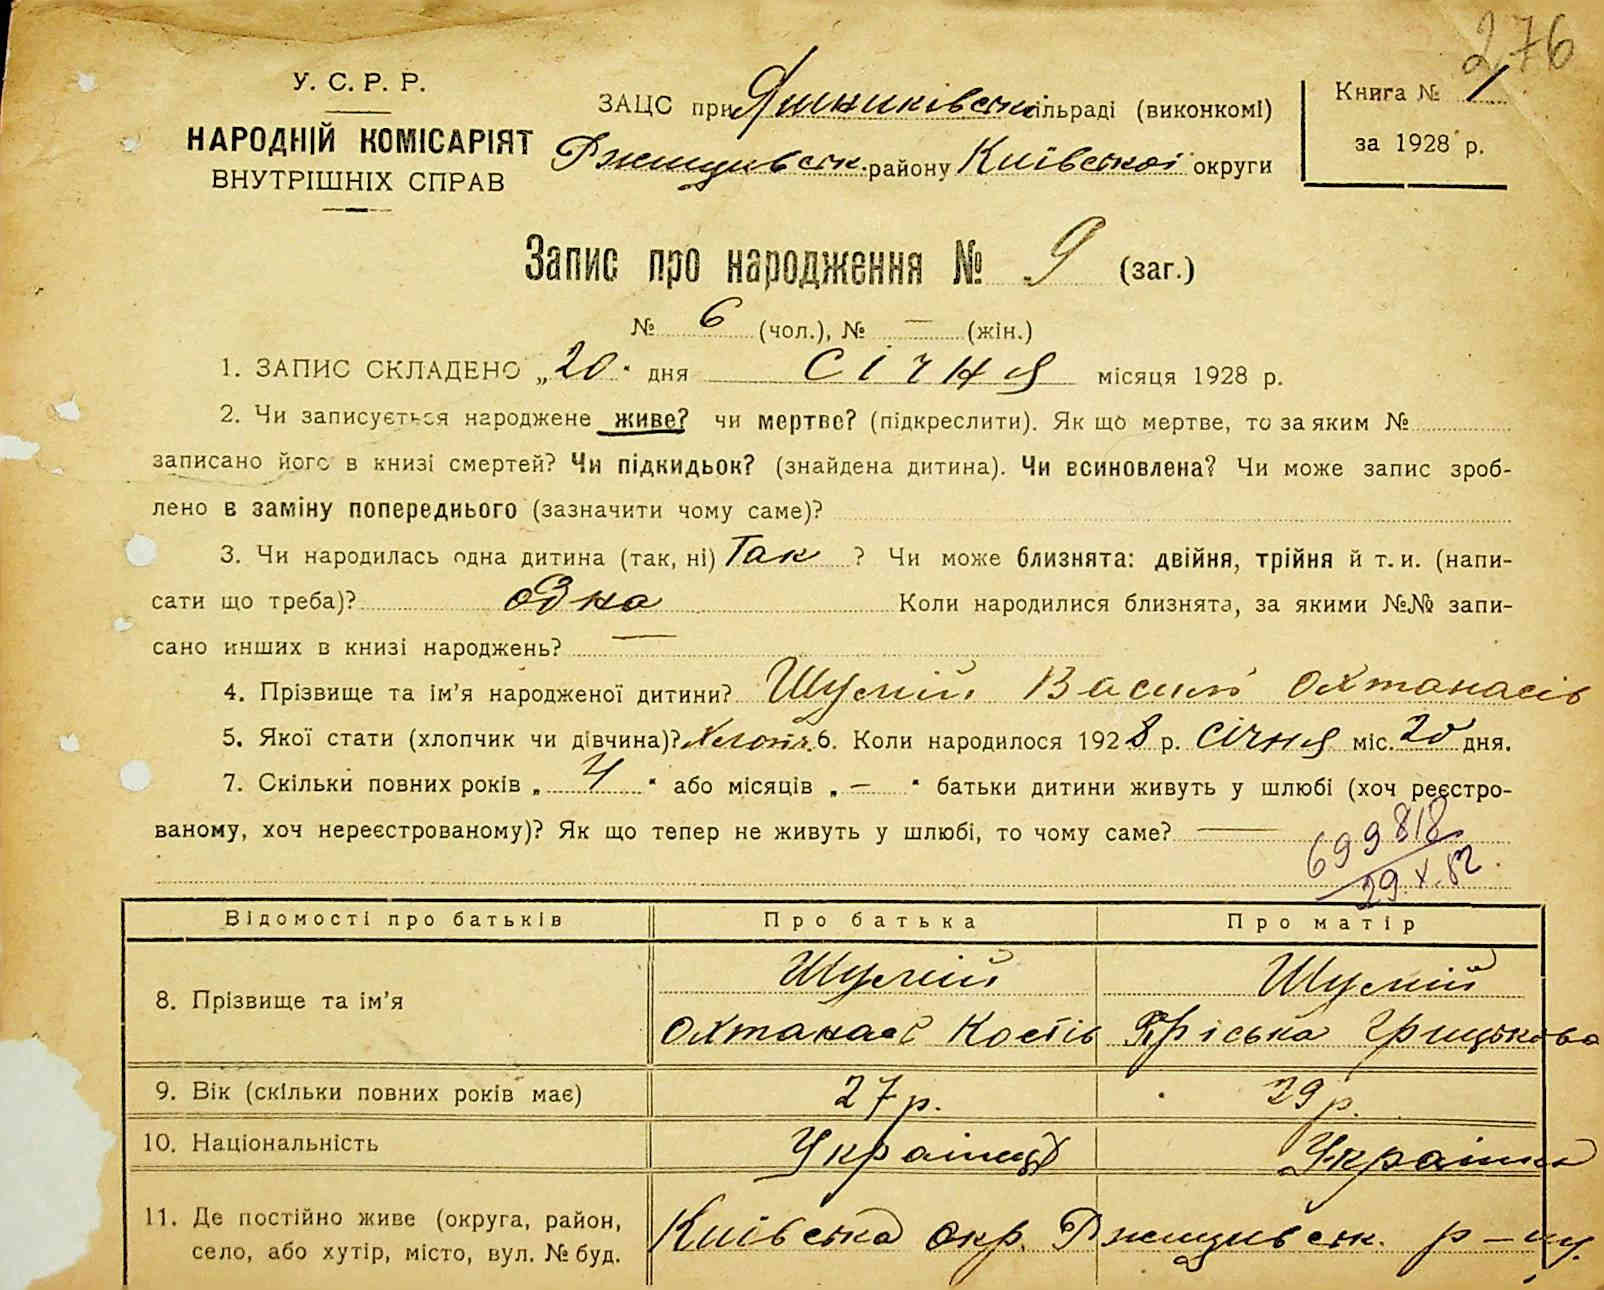 276
У. С. Р. Р.
НАРОДНІЙ КОМІСАРІЯТ
ВНУТРІШНІХ СПРАВ
ЗАЦС при Яшниківськ сільраді (виконкомі)
Ржищивськ. району Київської округи
Книга № 1
за 1928 р.
Запис про народження № 9 (заг.)
№ 6 (чол.), № — (жін.)
1. ЗАПИС СКЛАДЕНО „20" дня січня місяця 1928 р.
2. Чи записується народжене живе? чи мертве? (підкреслити). Як що мертве, то за яким №
записано його в книзі смертей? Чи підкидьок? (знайдена дитина). Чи всиновлена? Чи може запис зроб-
лено в заміну попереднього (зазначити чому саме)?
3. Чи народилась одна дитина (так, ні) Так ? Чи може близнята: двійня, трійня й т. и. (напи-
сати що треба)? одна Коли народилися близнята, за якими №№ запи-
сано инших в книзі народжень? —
4. Прізвище та ім'я народженої дитини? Шумій Василь Охтанасів
5. Якої стати (хлопчик чи дівчина)? Хлопч. 6. Коли народилося 1928 р. січня міс. 20 дня.
7. Скільки повних років „ 4 " або місяців „ — " батьки дитини живуть у шлюбі (хоч реєстро-
ваному, хоч нереєстрованому)? Як що тепер не живуть у шлюбі, то чому саме? —
699818
29.X.82.
Відомості про батьків Про батька Про матір
8. Прізвище та ім'я Шумій Охтанас Костів Шумій Пріська Грицькова
9. Вік (скільки повних років має) 27 р. 29 р.
10. Національність Українці Українка
11. Де постійно живе (округа, район,
село, або хутір, місто, вул. № буд.
Київська окр. Ржищивськ. р-ну.